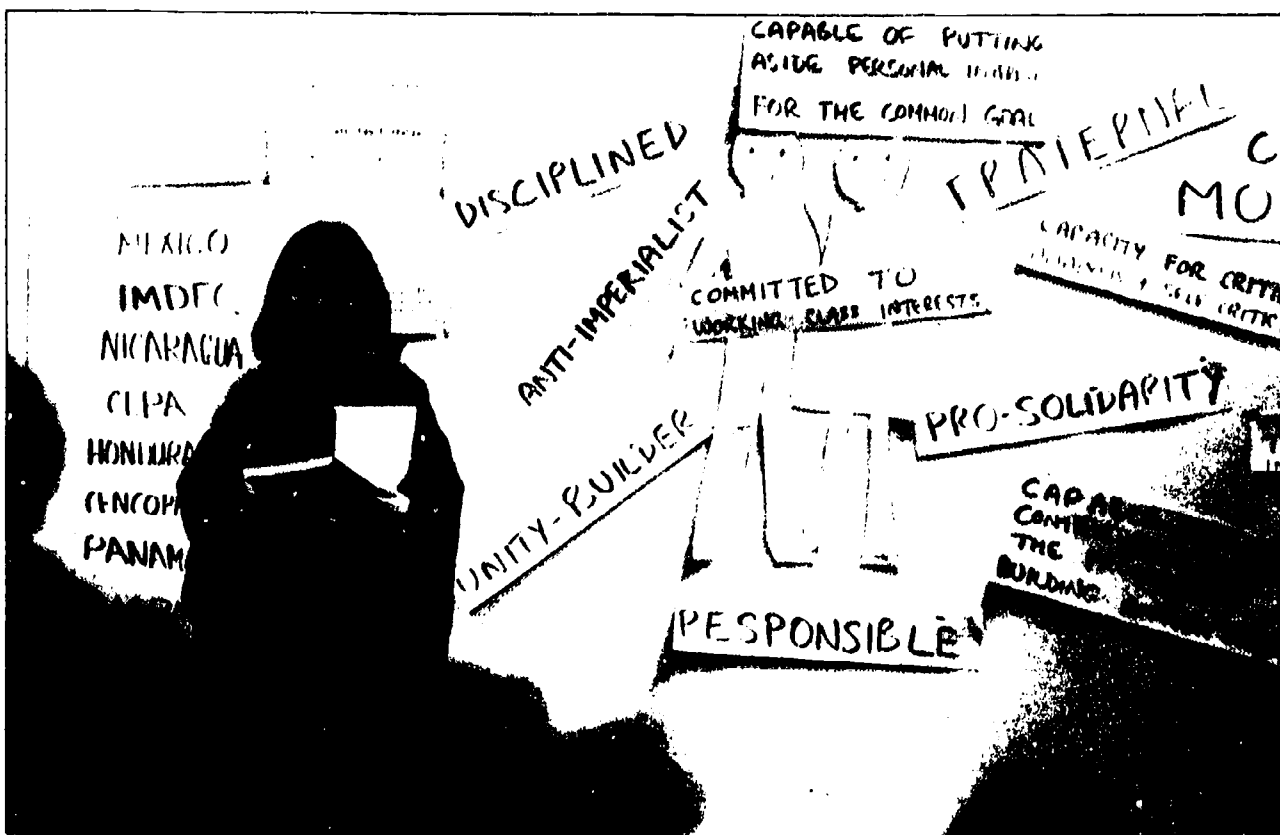 MEXICO
IMDEC
NICARAGUA
CEPA
HONDURA
CENCOPH
PANAM
DISCIPLINED
ANTI-IMPERIALIST
UNITY-BUILDER
CAPABLE OF PUTTING
ASIDE PERSONAL
FOR THE COMMON GOAL
COMMITTED TO
WORKING CLASS INTERESTS
RESPONSIBLE
FRATERNAL
C
MO
CAPACITY FOR CRITI
& SELF CRITIC
PRO-SOLIDARITY
CAPAB
THE
BUILDING